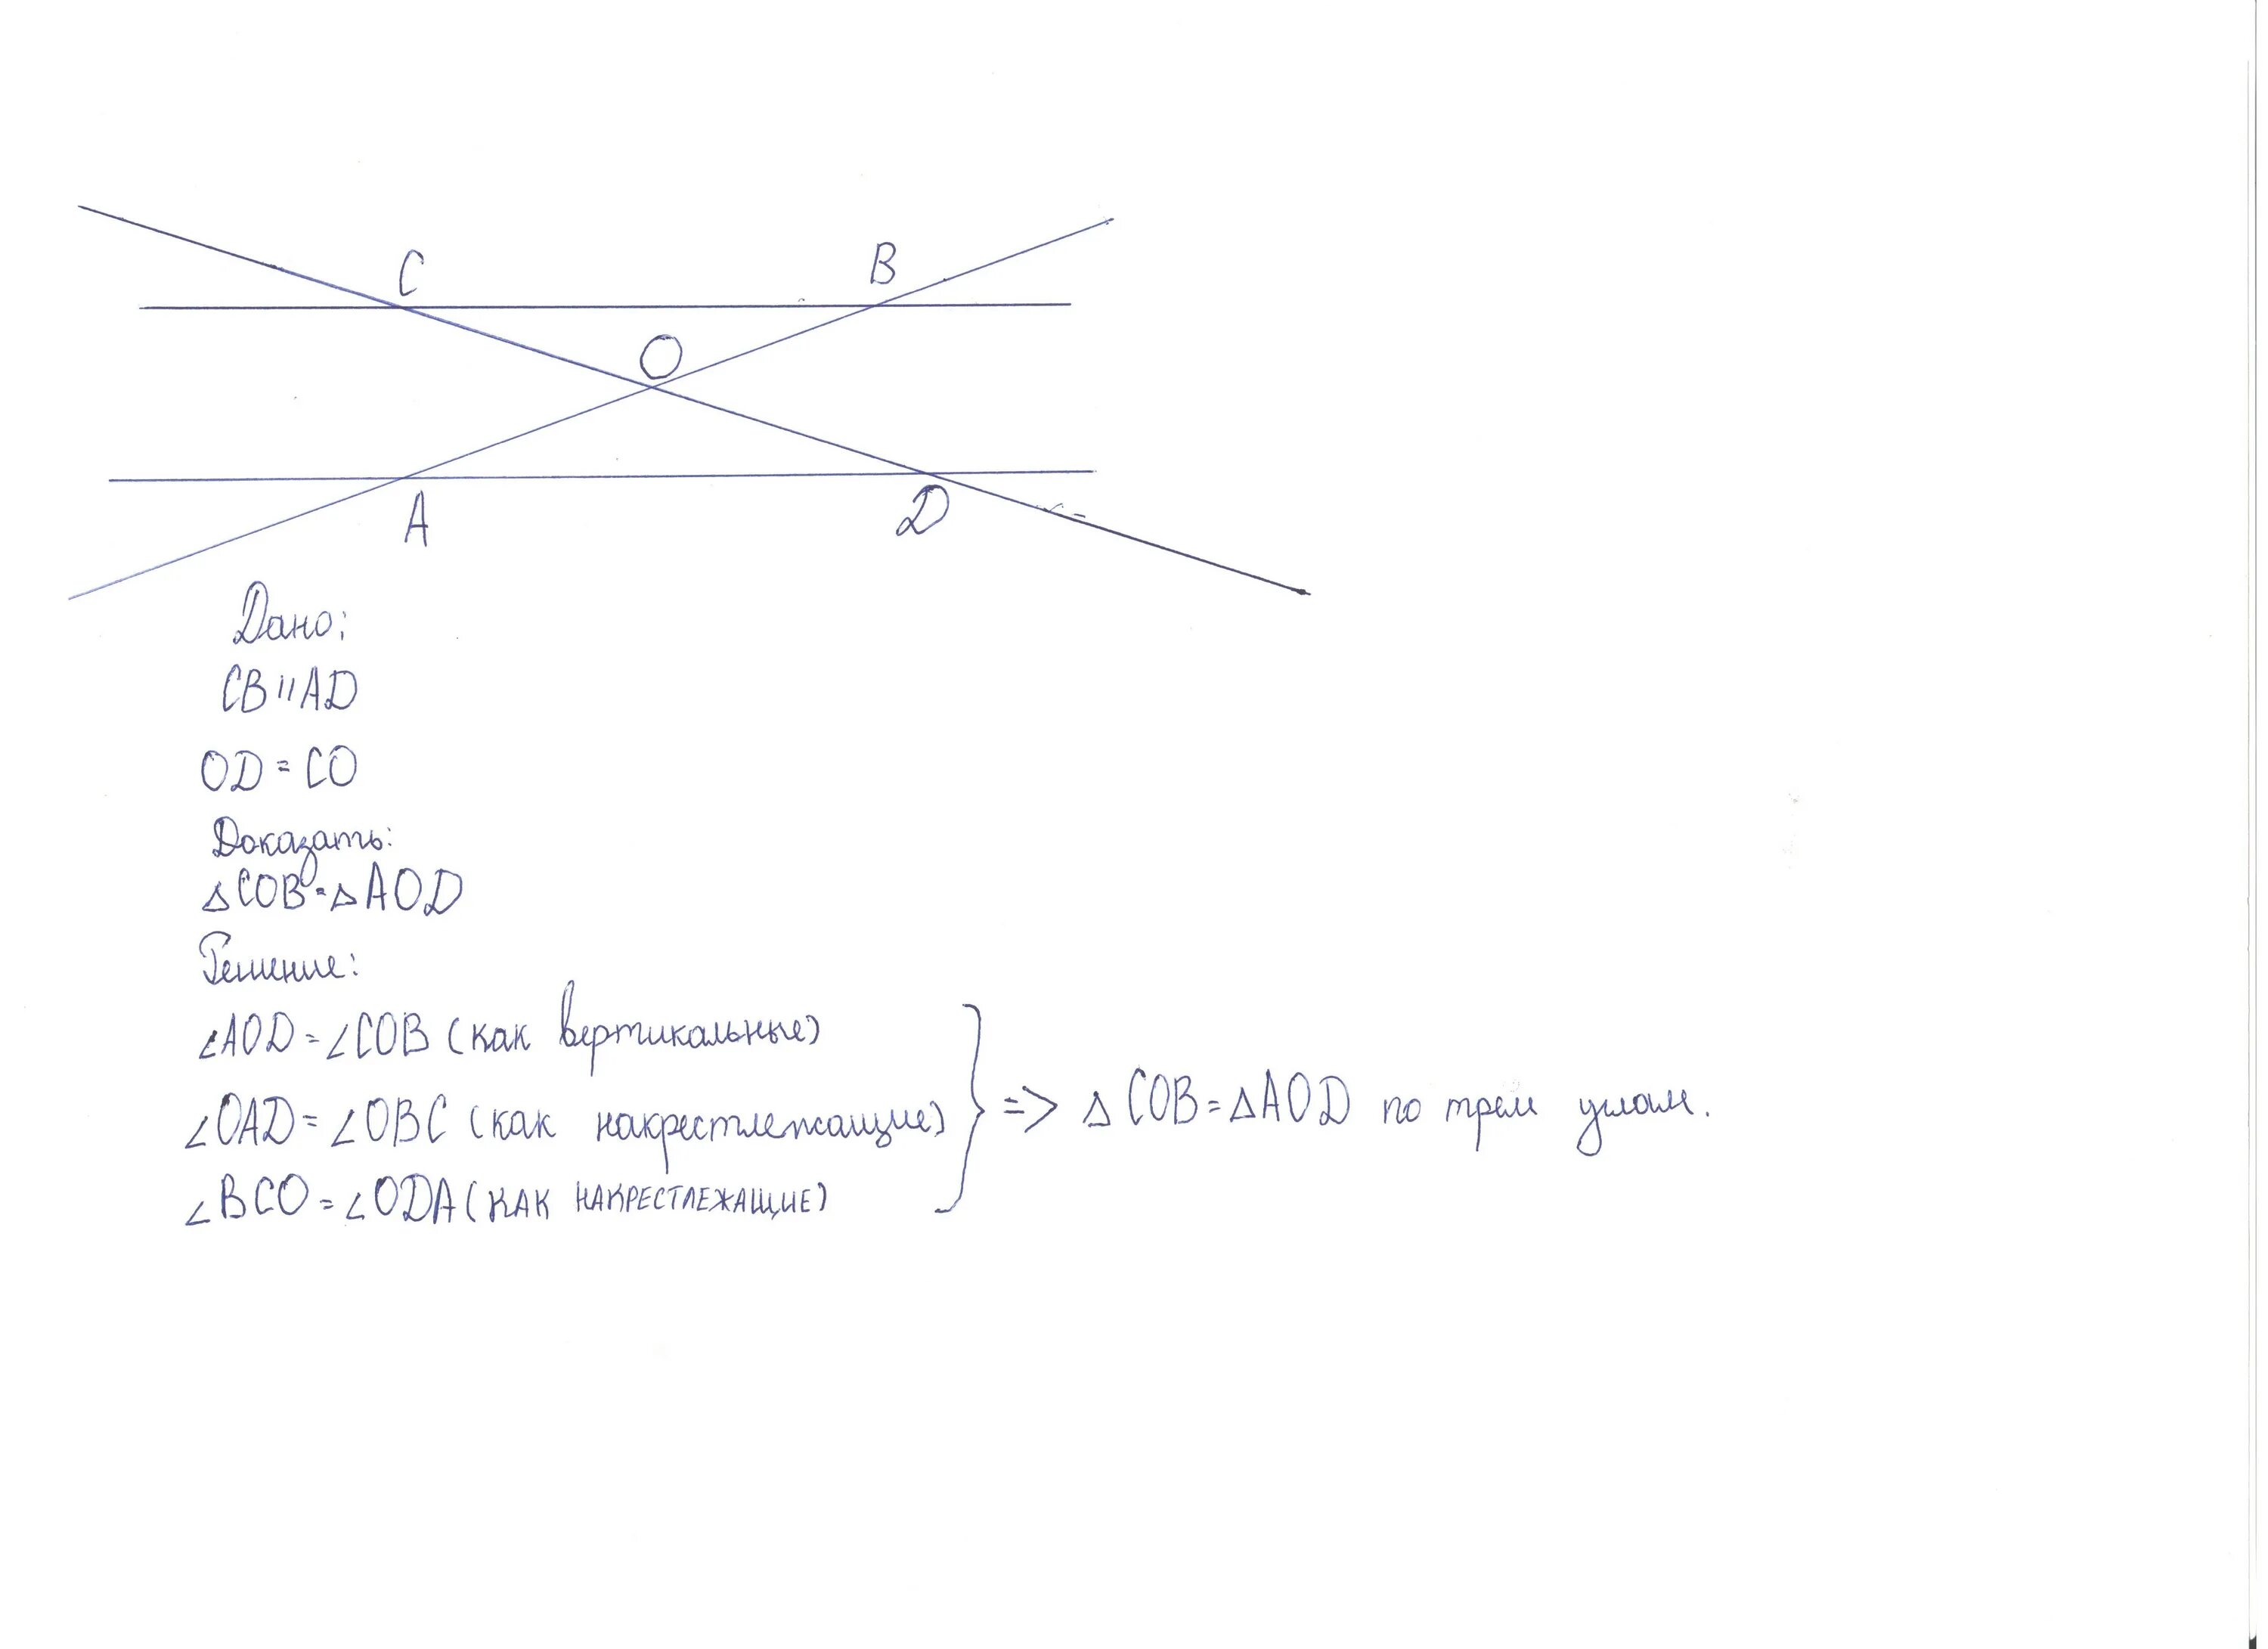 C
B
O
A
D
Дано:
CB || AD
OD = CO
Доказать:
△COB = △AOD
Решение:
∠AOD = ∠COB (как вертикальные)
∠OAD = ∠OBC (как накрестлежащие)
∠BCO = ∠ODA (КАК НАКРЕСТЛЕЖАЩИЕ)
} => △COB = △AOD по трём углам.